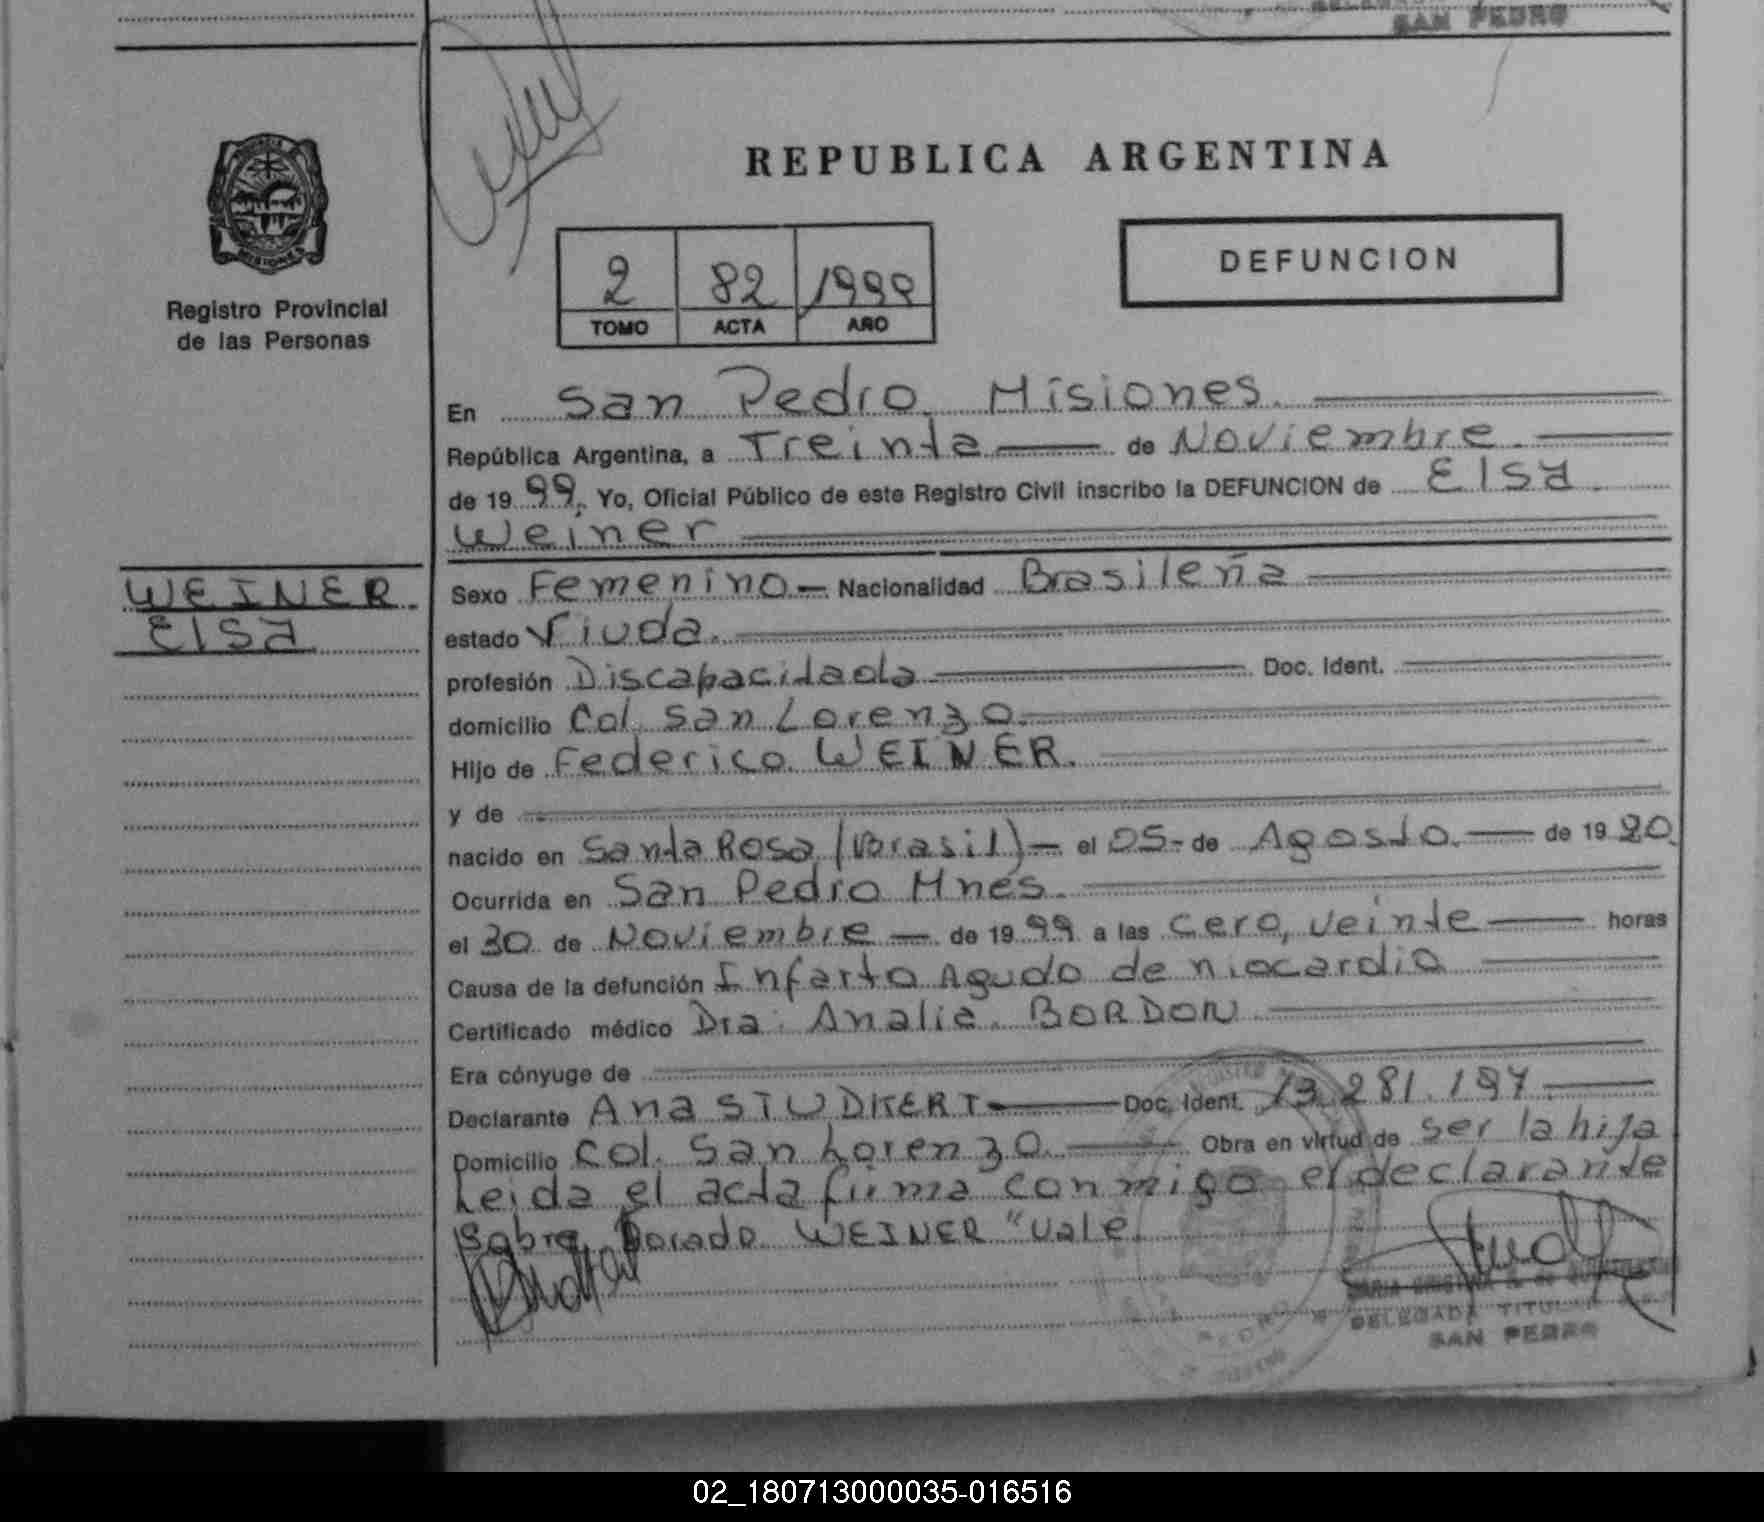 SAN PEDRO
REPUBLICA ARGENTINA
DEFUNCION
2 82 1999
TOMO ACTA AÑO
PROVINCIA DE
MISIONES
Registro Provincial
de las Personas
En San Pedro, Misiones.
República Argentina, a Treinta de Noviembre.
de 19 99. Yo, Oficial Público de este Registro Civil inscribo la DEFUNCION de Elsa
Weiner
WEINER
Elsa
Sexo Femenino Nacionalidad Brasileña
estado Viuda.
profesión Discapacitada Doc. Ident.
domicilio Col. San Lorenzo.
Hijo de Federico WEINER.
y de
nacido en Santa Rosa (Brasil) el 05 de Agosto. de 19 20.
Ocurrida en San Pedro Mnes.
el 30 de Noviembre de 19 99 a las cero, veinte horas
Causa de la defunción Infarto Agudo de niocardio
Certificado médico Dra. Analia. BORDON
Era cónyuge de
Declarante Ana STUDKERT Doc. Ident. 13.281.197.
Domicilio Col. San Lorenzo. Obra en virtud de ser la hija
Leida el acta firma conmigo el declarante
Sobre Borado WEINER "Vale
DELEGADA TITULAR
SAN PEDRO
02_180713000035-016516